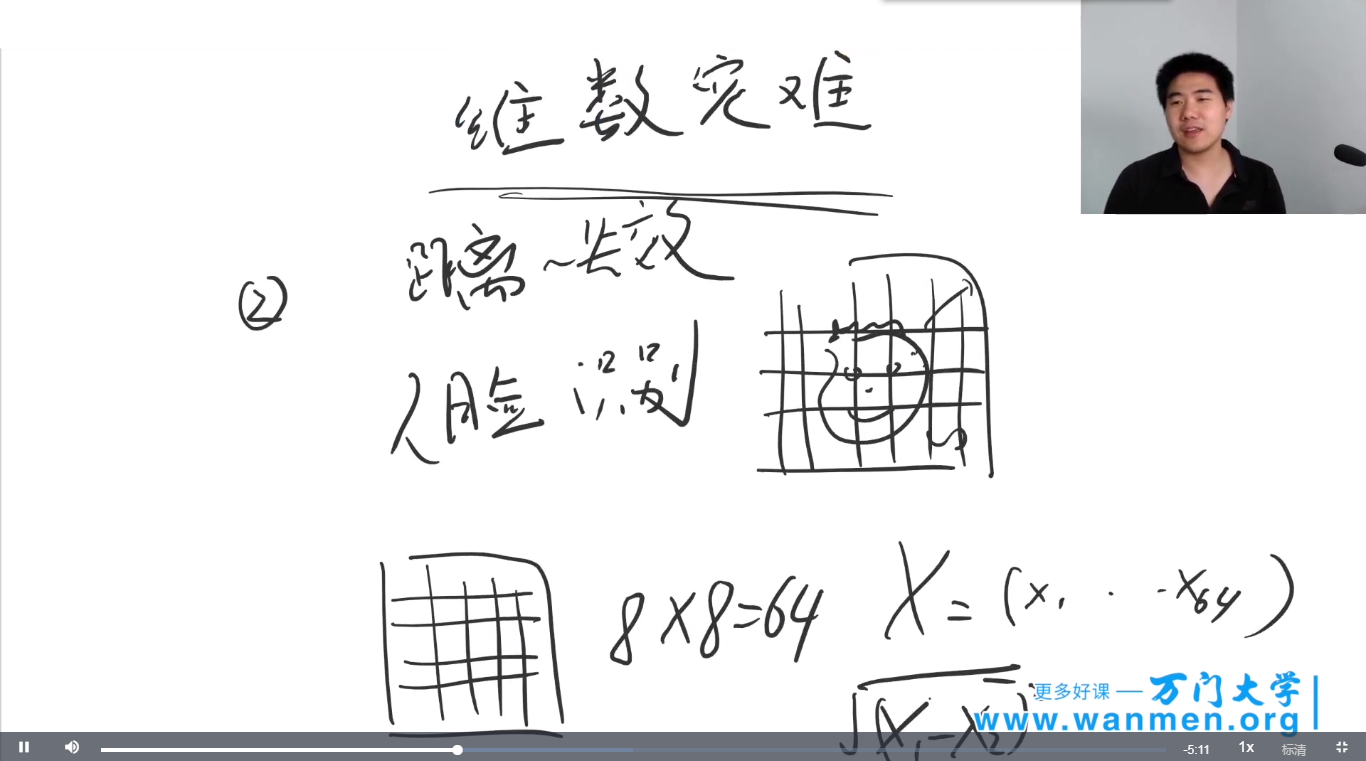 维数灾难
距离~失效
②
人脸识别
8×8=64
X=(x₁ · · · x₆₄)
√(X₁-X₂)
更多好课 — 万门大学
www.wanmen.org
-5:11 1x 标清